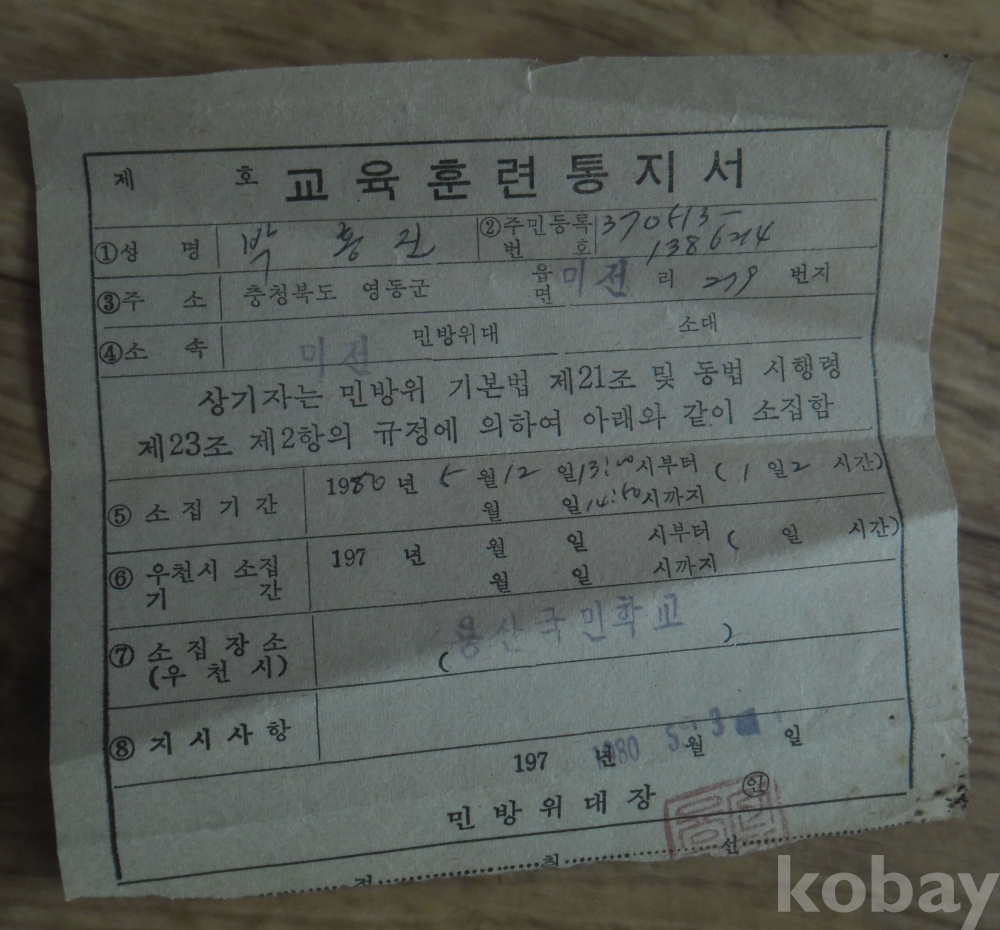 제 호 교육훈련통지서
①성 명 박
②주민등록
번 호
③주 소 충청북도 영동군 읍
면 미전 리 279 번지
④소 속 미전 민방위대 소대
상기자는 민방위 기본법 제21조 및 동법 시행령
제23조 제2항의 규정에 의하여 아래와 같이 소집함
⑤ 소집기간 1980년 5 월 12 일 13:00 시부터 ( 1 일 2 시간)
월 일 14:50 시까지
⑥ 우천시 소집
기 간
197 년 월 일 시부터 ( 일 시간)
월 일 시까지
⑦ 소집장소
(우 천 시)
용산국민학교
( )
⑧ 지시사항
197 년 1980 5. 3 월 일
민방위대장 ㊞
절 취 선
kobay